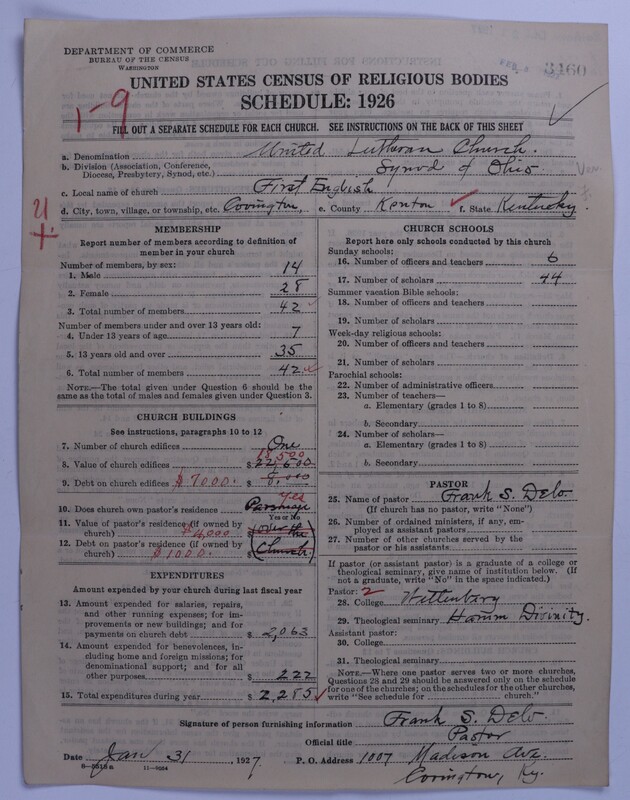 DEPARTMENT OF COMMERCE
BUREAU OF THE CENSUS
WASHINGTON
3460
UNITED STATES CENSUS OF RELIGIOUS BODIES
SCHEDULE: 1926
1-9
FILL OUT A SEPARATE SCHEDULE FOR EACH CHURCH. SEE INSTRUCTIONS ON THE BACK OF THIS SHEET
a. Denomination United Lutheran Church.
b. Division (Association, Conference, Diocese, Presbytery, Synod, etc.) Synod of Ohio
c. Local name of church First English
d. City, town, village, or township, etc. Covington, e. County Kenton f. State Kentucky.
MEMBERSHIP
Report number of members according to definition of
member in your church
Number of members, by sex:
1. Male 14
2. Female 28
3. Total number of members 42
Number of members under and over 13 years old:
4. Under 13 years of age 7
5. 13 years old and over 35
6. Total number of members 42
NOTE.—The total given under Question 6 should be
the same as the total of males and females given under Question 3.
CHURCH BUILDINGS
See instructions, paragraphs 10 to 12
7. Number of church edifices One
18,500
8. Value of church edifices $ 22,600
9. Debt on church edifices $7000. $ 8,000
Yes
10. Does church own pastor's residence? Parsonage
Yes or No
11. Value of pastor's residence (if owned by
church) $4000. over the
12. Debt on pastor's residence (if owned by
church) $1000. Church
EXPENDITURES
Amount expended by your church during last fiscal year
13. Amount expended for salaries, repairs,
and other running expenses; for im-
provements or new buildings; and for
payments on church debt $ 2,063
14. Amount expended for benevolences, in-
cluding home and foreign missions; for
denominational support; and for all
other purposes $ 222
15. Total expenditures during year $ 2,285
CHURCH SCHOOLS
Report here only schools conducted by this church
Sunday schools:
16. Number of officers and teachers 6
17. Number of scholars 44
Summer vacation Bible schools:
18. Number of officers and teachers
19. Number of scholars
Week-day religious schools:
20. Number of officers and teachers
21. Number of scholars
Parochial schools:
22. Number of administrative officers
23. Number of teachers—
a. Elementary (grades 1 to 8)
b. Secondary
24. Number of scholars—
a. Elementary (grades 1 to 8)
b. Secondary
PASTOR
25. Name of pastor Frank S. Delo.
(If church has no pastor, write "None")
26. Number of ordained ministers, if any, em-
ployed as assistant pastors
27. Number of other churches served by the
pastor or his assistants
If pastor (or assistant pastor) is a graduate of a college or
theological seminary, give name of institution below. (If
not a graduate, write "No" in the space indicated.)
Pastor: 2
28. College Wittenburg
29. Theological seminary Hamm Divinity.
Assistant pastor:
30. College
31. Theological seminary
NOTE.—Where one pastor serves two or more churches,
Questions 28 and 29 should be answered only on the schedule
for one of the churches; on the schedules for the other churches,
write "See schedule for church."
Signature of person furnishing information Frank S. Delo.
Official title Pastor
Date Jan 31, 1927. P. O. Address 1007 Madison Ave.
11—9564 Covington, Ky.